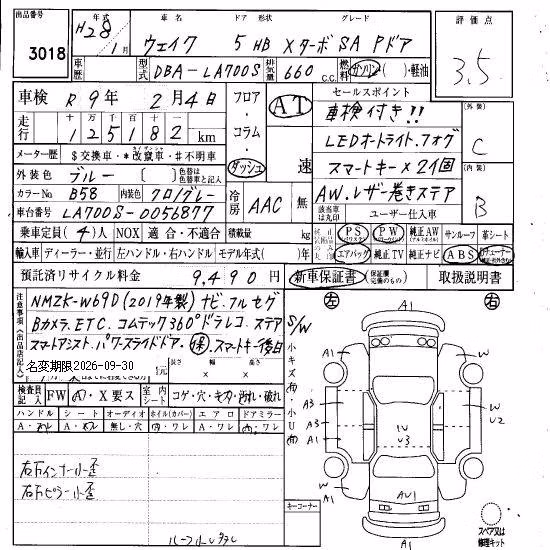 出品番号 3018
年式 H28/1月
車名 ウェイク
ドア 形状 5 HB
グレード XターボSA Pドア
評価点 3,5
車歴
型式 DBA-LA700S
排気量 660 C.C.
燃料 ガソリン・( )・軽油
車検 R9年 2月4日
フロア・コラム・ダッシュ
AT 速
セールスポイント
車検付き!!
LEDオートライト.フォグ
スマートキー×2個
AW.レザー巻きステア
外装 C
内装 B
走行 十万 万 千 百 十 一
125182 km
メーター歴 $交換車・*改竄車・#不明車
外装色 ブルー
色替は色替車と記入
カラーNo. B58
内装色 クロ/グレー
冷房 AAC 無
車台番号 LA700S-0056877
該当車は丸印
ユーザー仕入車
乗車定員 (4)人
NOX 適合・不適合
積載量 kg
PS PW 純正AW サンルーフ 革シート
輸入車 ディーラー・並行
左ハンドル・右ハンドル
モデル年式( )年
エアバッグ 純正TV 純正ナビ ABS
預託済リサイクル料金 9,490円
新車保証書 保証書 取扱説明書
注意事項(出品店記入)
NMZK-W69D(2019年製)ナビ.フルセグ
Bカメラ.ETC.コムテック360°ドラレコ.ステア
スマートアシスト.パワースライドドア.保.スマートキー後日
名変期限2026-09-30
長さ 幅 高さ
検査員記入 FW A・X要ス
室内シート コゲ・穴・キズ・汚れ・破れ
ハンドル シート オーディオ ホイル(カバー) エアロ ドアミラー
無し・穴
右下インナー小歪
右下ピラー小歪
キーコーナー
左 右
S/W
小キズ
小U
A1
A1 W
A3 W
A3 U2
A1
W
U3
A1 W
AU1
A1
スペア又は修理キット